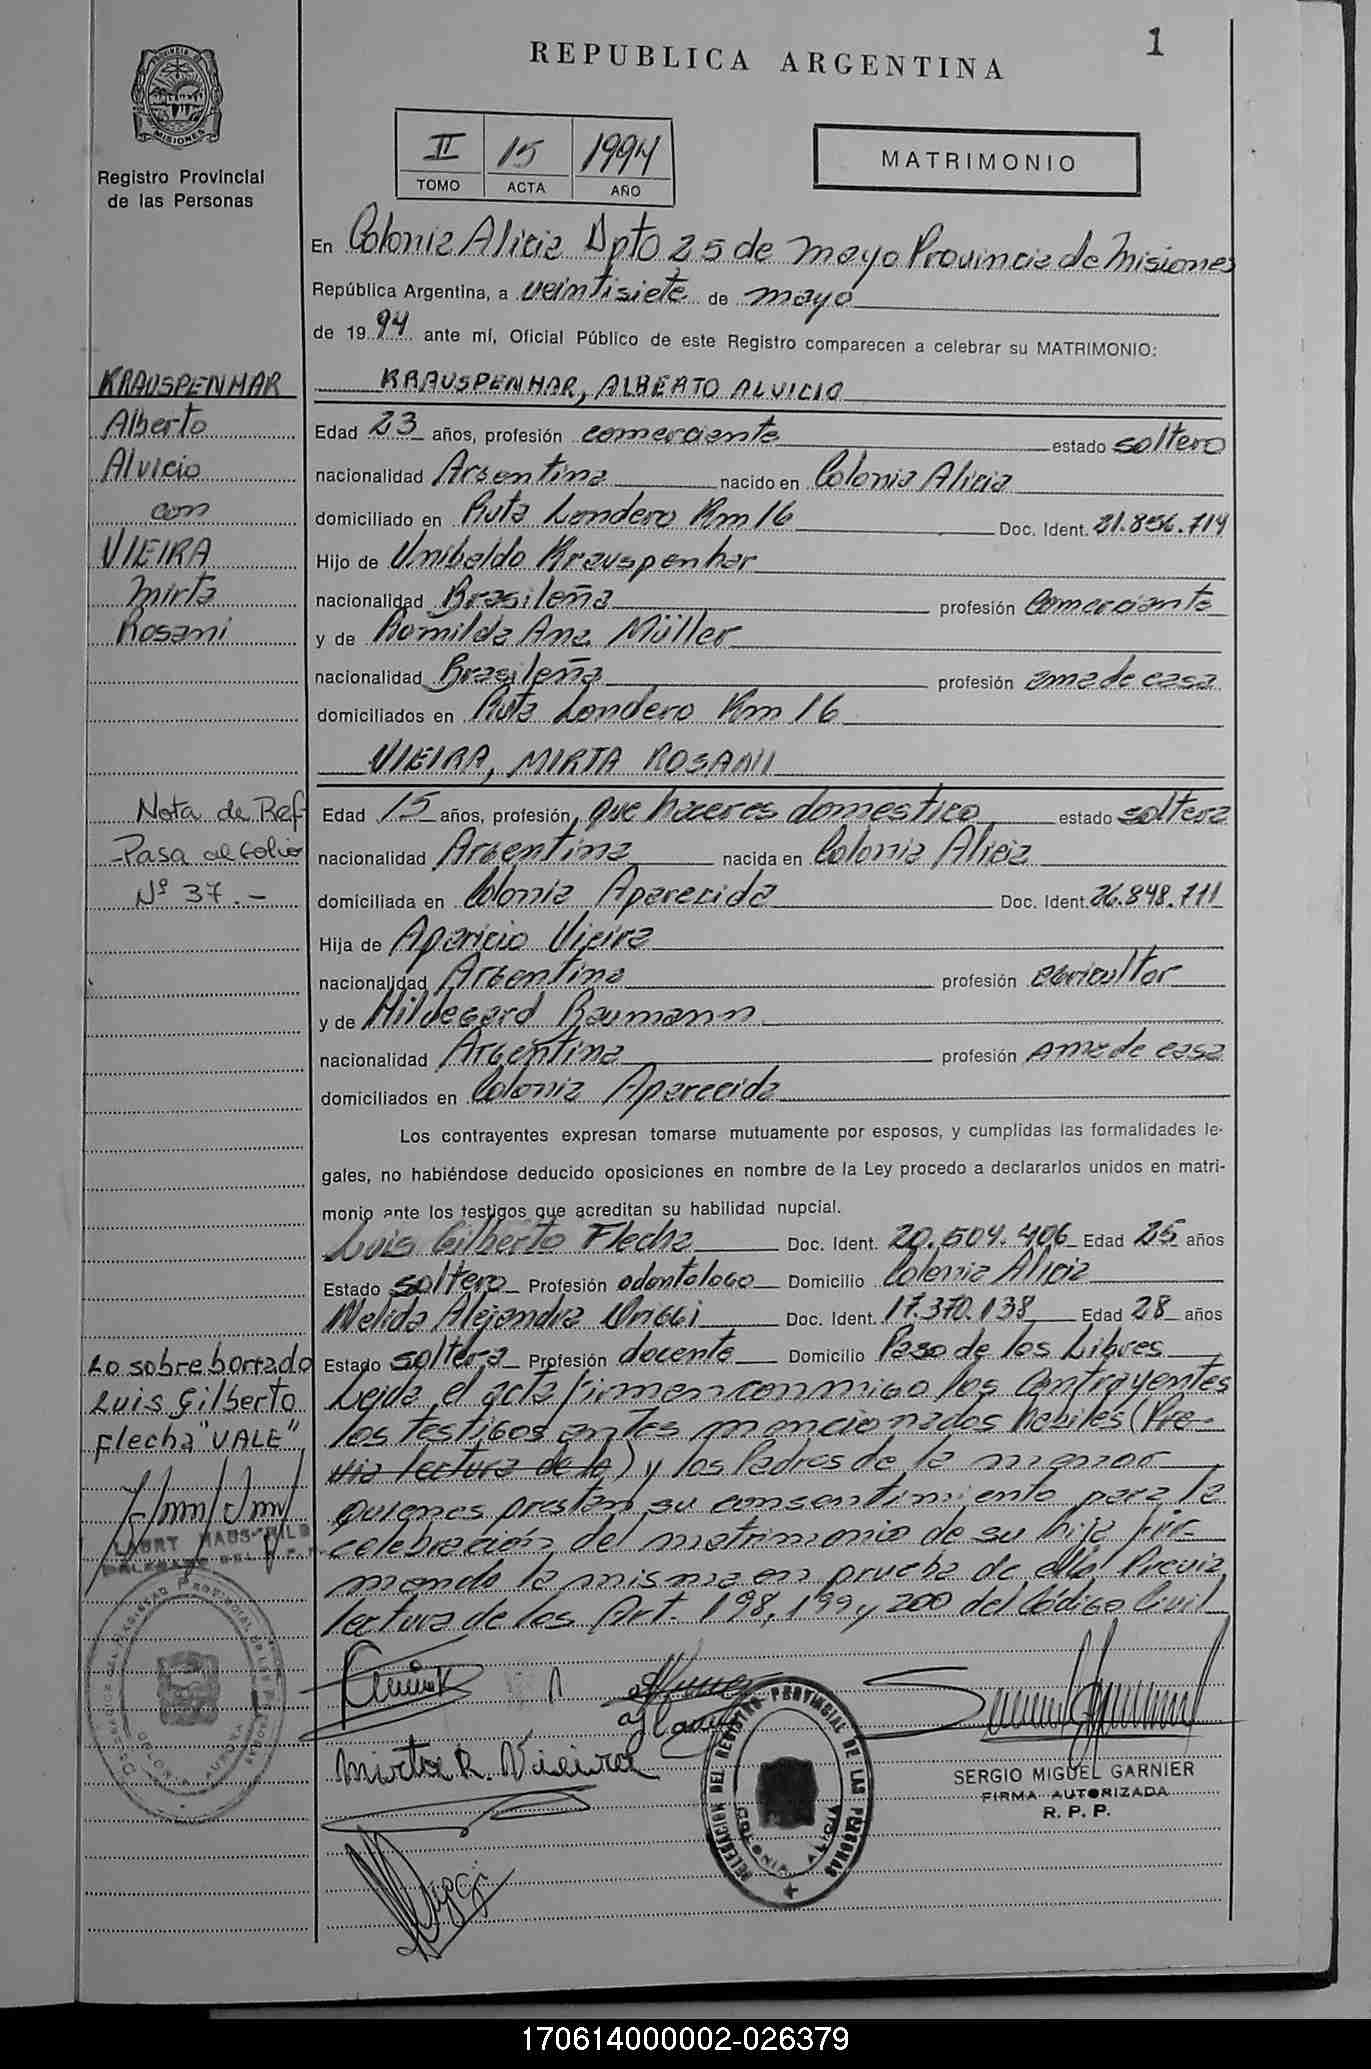 1
REPUBLICA ARGENTINA
PROVINCIA DE
MISIONES
Registro Provincial
de las Personas
II 15 1994
TOMO ACTA AÑO
MATRIMONIO
En Colonia Alicia Dpto 25 de mayo Provincia de Misiones
República Argentina, a veintisiete de mayo
de 1994 ante mí, Oficial Público de este Registro comparecen a celebrar su MATRIMONIO:
KRAUSPENHAR
Alberto
Alvicio
con
VIEIRA
Mirta
Rosani
KRAUSPENHAR, ALBERTO ALVICIO
Edad 23 años, profesión comerciante estado soltero
nacionalidad Argentina nacido en Colonia Alicia
domiciliado en Ruta Londero Km 16 Doc. Ident. 21.856.714
Hijo de Unibaldo Krauspenhar
nacionalidad Brasileña profesión Comerciante
y de Romilda Ana Müller
nacionalidad Brasileña profesión ama de casa
domiciliados en Ruta Londero Km 16
VIEIRA, MIRTA ROSANI
Nota de Ref-
-Pasa al folio
Nº 37.-
Edad 15 años, profesión que haceres domestico estado soltera
nacionalidad Argentina nacida en Colonia Alicia
domiciliada en Colonia Aparecida Doc. Ident. 26.848.711
Hija de Aparicio Vieira
nacionalidad Argentina profesión agricultor
y de Hildegard Baumann
nacionalidad Argentina profesión ama de casa
domiciliados en Colonia Aparecida
Los contrayentes expresan tomarse mutuamente por esposos, y cumplidas las formalidades le-
gales, no habiéndose deducido oposiciones en nombre de la Ley procedo a declararlos unidos en matri-
monio ante los testigos que acreditan su habilidad nupcial.
Luis Gilberto Flecha Doc. Ident. 20.504.406 Edad 25 años
Estado soltero Profesión odontologo Domicilio Colonia Alicia
Nelida Alejandra Doc. Ident. 17.370.138 Edad 28 años
Estado soltera Profesión docente Domicilio Paso de los Libres
Lo sobre borrado
Luis Gilberto
Flecha "VALE"
Leida el acta firman conmigo los Contrayentes
los testigos antes mencionados habiles (Pre-
via lectura de la) y los Padres de la menor
quienes prestan su consentimiento para la
celebración del matrimonio de su hija fir-
mando la misma en prueba de ello. Previa
lectura de los Art. 198, 199 y 200 del Código Civil
DELEGACION DEL REGISTRO PROVINCIAL DE LAS PERSONAS
COLONIA AURORA
Mirta R. Vieira
DELEGACION DEL REGISTRO PROVINCIAL DE LAS PERSONAS
COLONIA ALICIA
SERGIO MIGUEL GARNIER
FIRMA AUTORIZADA
R. P. P.
170614000002-026379